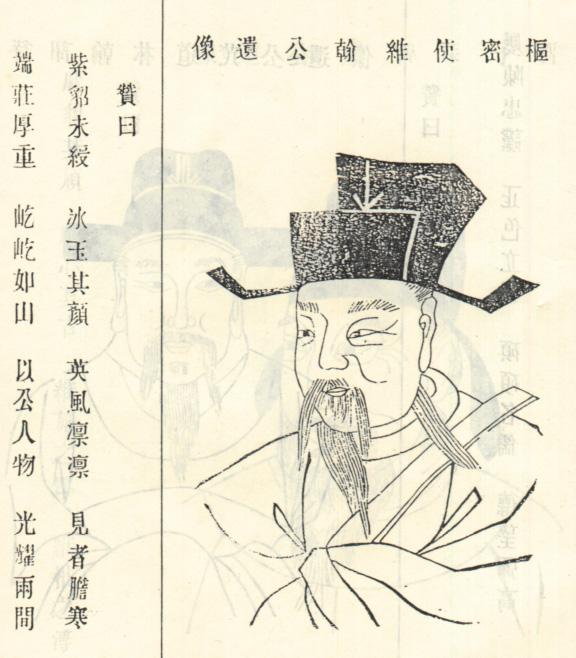 樞密使維翰公遺像
贊曰
紫貂未綬 冰玉其顏 英風凛凛 見者膽寒
端莊厚重 屹屹如山 以公人物 光耀兩間